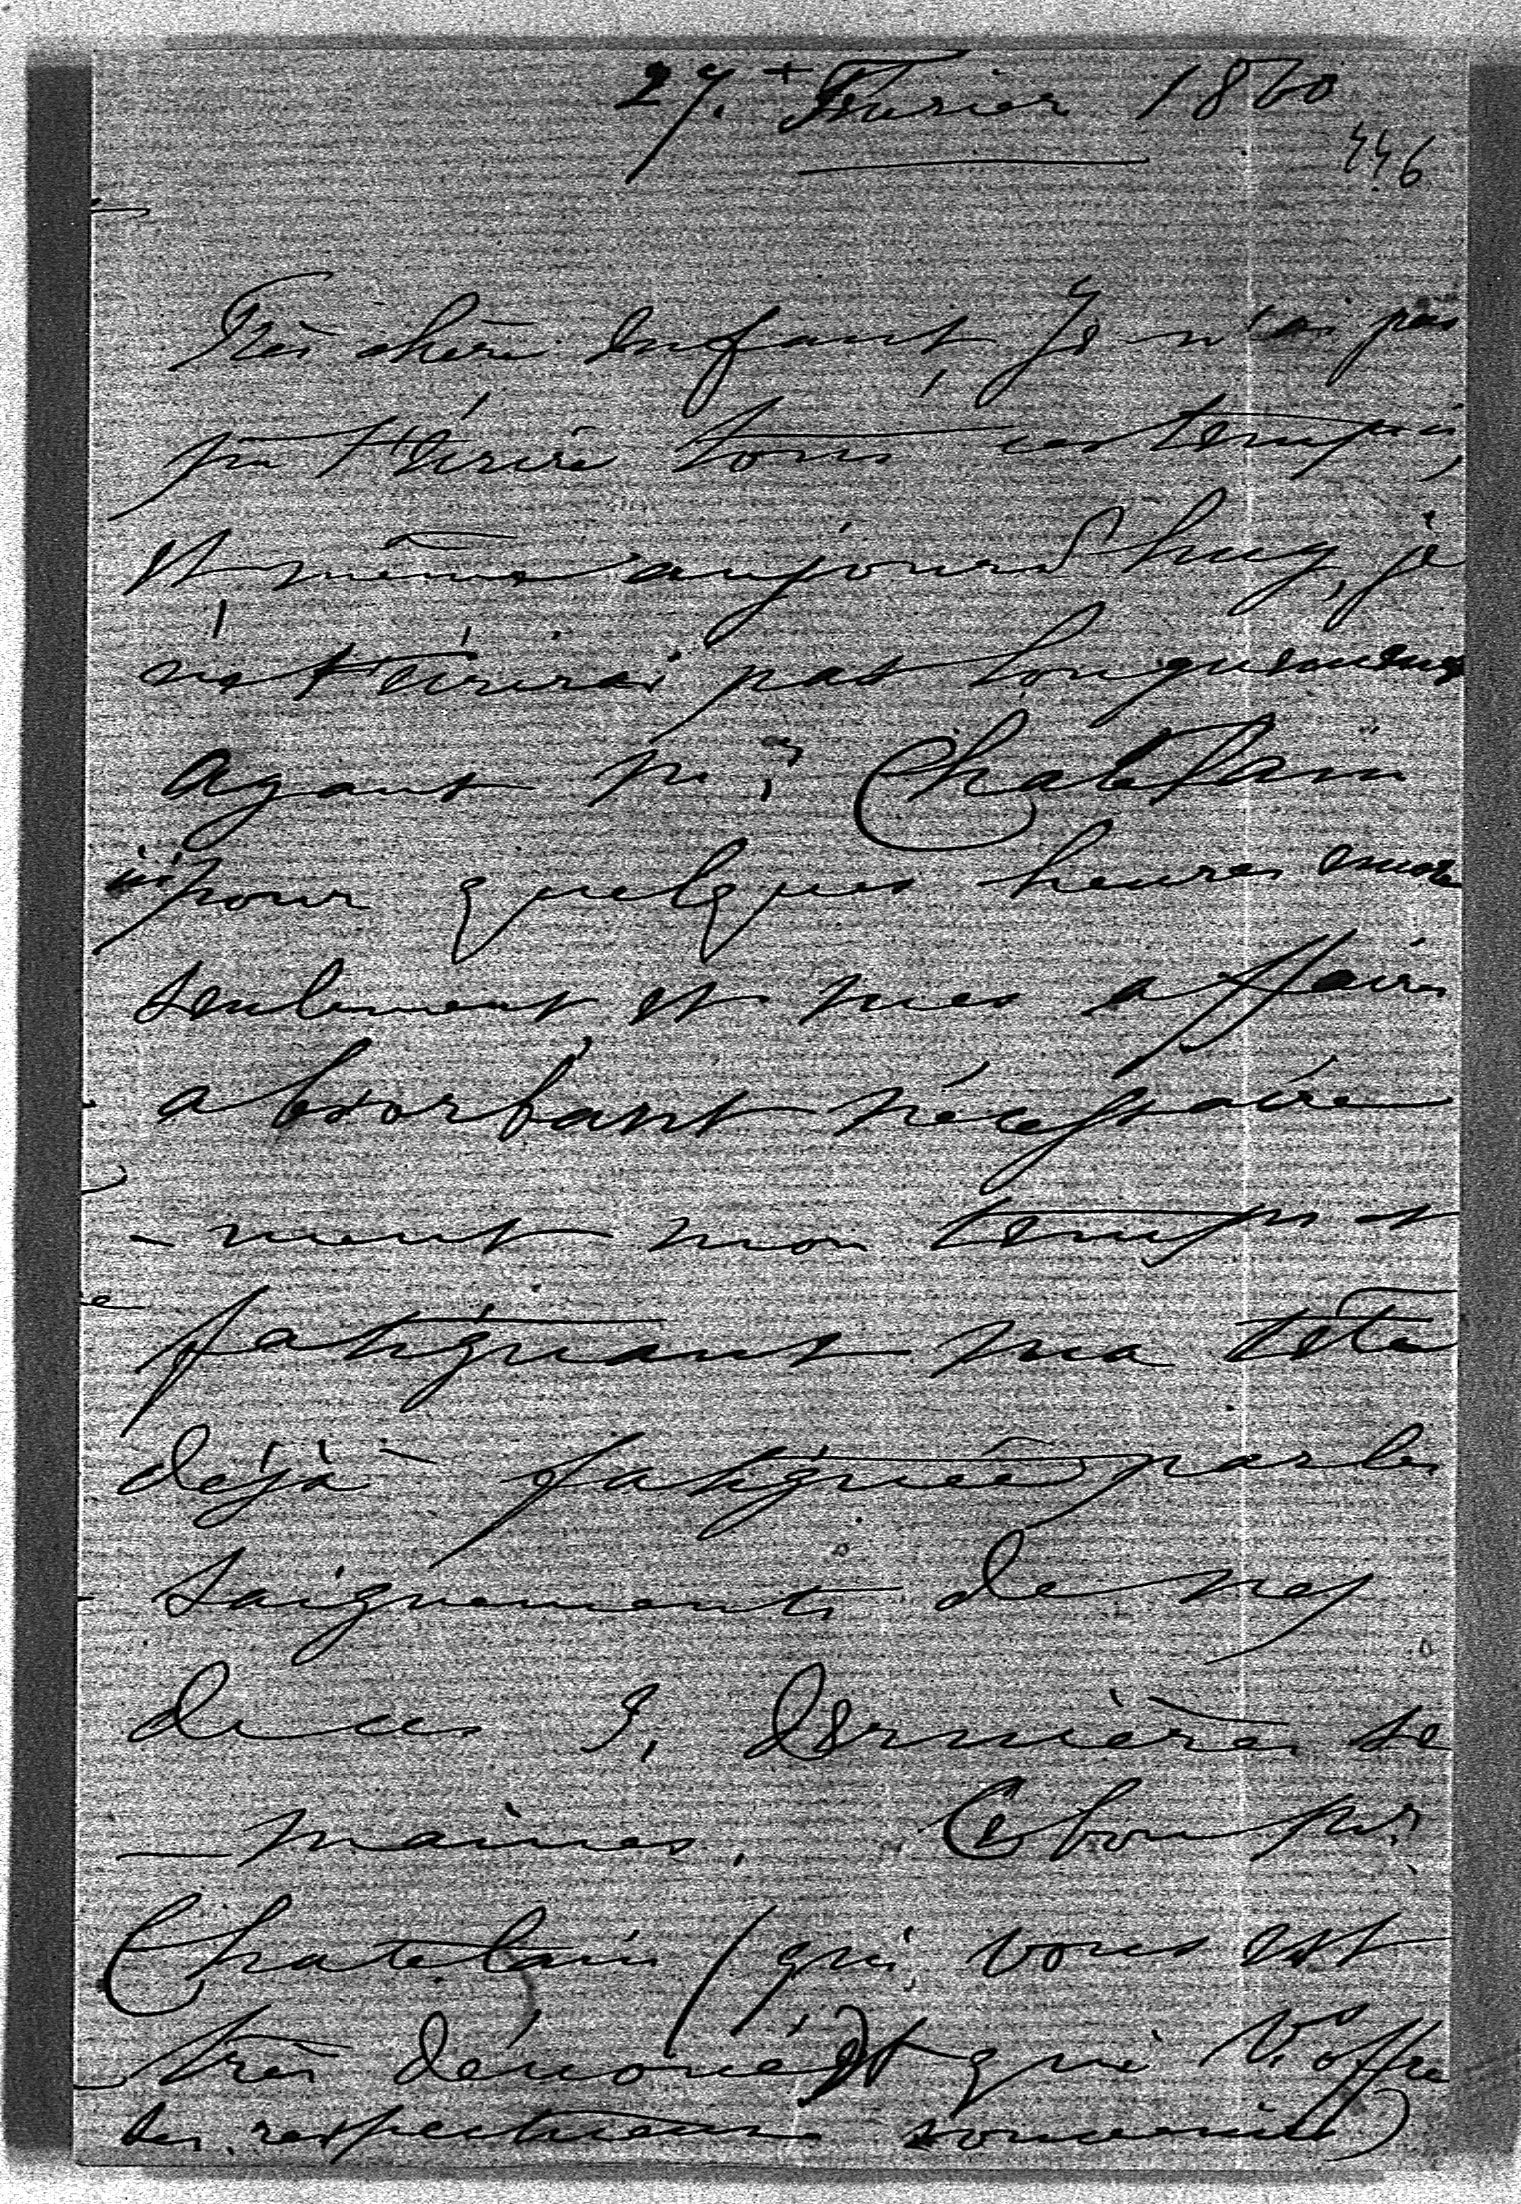 27. Fevrier 1860
446
Très chère enfant, Je n'ai pas
pu t'écrire tous ces temps ci,
et même aujourd'huy, je
ne t'écrirai pas longuement
ayant Mr Chatelain
ici pour quelques heures encore
seulement et mes affaires
absorbant nécessaire
-ment mon temps et
fatiguant ma tête
déjà fatiguée par les
saignements de nez
de ces 3. dernières se
-maines. Ce bon Mr
Chatelain (qui vous est
très dévoué et qui V. offre
ses respectueux souvenirs)